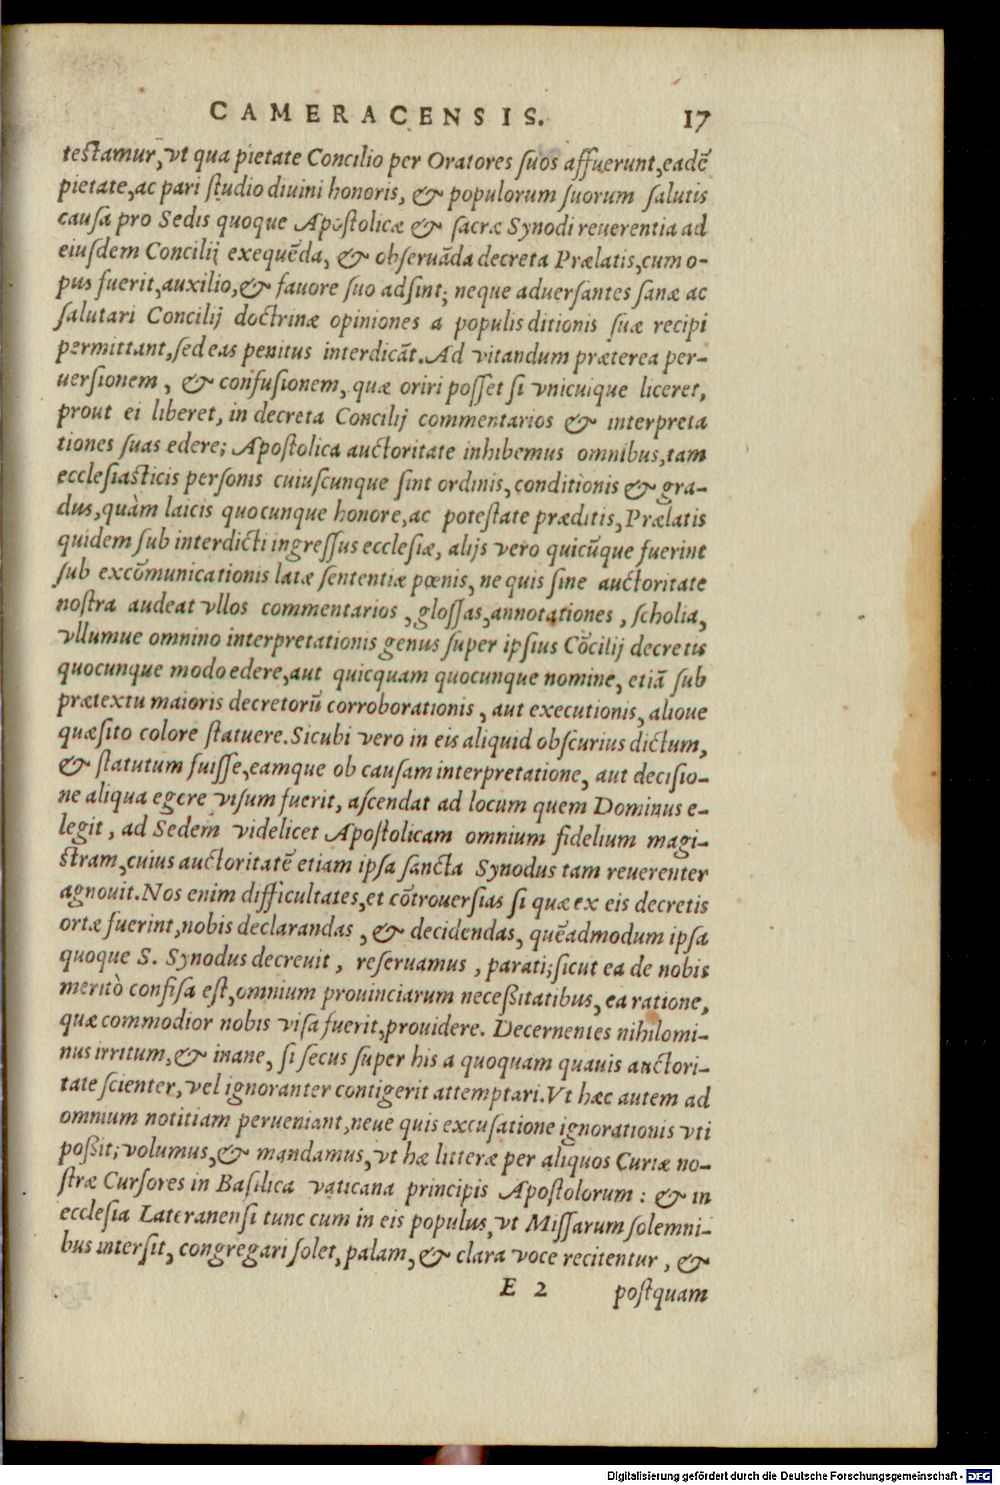 CAMERACENSIS. 17
testamur, vt qua pietate Concilio per Oratores suos affuerunt, eadē
pietate, ac pari studio diuini honoris, & populorum suorum salutis
causa pro Sedis quoque Apostolicæ & sacræ Synodi reuerentia ad
eiusdem Concilij exequēda, & obseruāda decreta Prælatis, cum o-
pus fuerit, auxilio, & fauore suo adsint; neque aduersantes sanæ ac
salutari Concilij doctrinæ opiniones a populis ditionis suæ recipi
permittant, sed eas penitus interdicāt. Ad vitandum præterea per-
uersionem, & confusionem, quæ oriri posset si vnicuique liceret,
prout ei liberet, in decreta Concilij commentarios & interpreta
tiones suas edere; Apostolica auctoritate inhibemus omnibus, tam
ecclesiasticis personis cuiuscunque sint ordinis, conditionis & gra-
dus, quàm laicis quocunque honore, ac potestate præditis, Prælatis
quidem sub interdicti ingressus ecclesiæ, alijs vero quicūque fuerint
sub excōmunicationis latæ sententiæ pœnis, ne quis sine auctoritate
nostra audeat vllos commentarios, glossas, annotationes, scholia,
vllumue omnino interpretationis genus super ipsius Cōcilij decretis
quocunque modo edere, aut quicquam quocunque nomine, etiā sub
prætextu maioris decretorū corroborationis, aut executionis, alioue
quæsito colore statuere. Sicubi vero in eis aliquid obscurius dictum,
& statutum fuisse, eamque ob causam interpretatione, aut decisio-
ne aliqua egere visum fuerit, ascendat ad locum quem Dominus e-
legit, ad Sedem videlicet Apostolicam omnium fidelium magi-
stram, cuius auctoritatē etiam ipsa sancta Synodus tam reuerenter
agnouit. Nos enim difficultates, et cōtrouersias si quæ ex eis decretis
ortæ fuerint, nobis declarandas, & decidendas, quēadmodum ipsa
quoque S. Synodus decreuit, reseruamus, parati; sicut ea de nobis
meritò confisa est, omnium prouinciarum necessitatibus, ea ratione,
quæ commodior nobis visa fuerit, prouidere. Decernentes nihilomi-
nus irritum, & inane, si secus super his a quoquam quauis auctori-
tate scienter, vel ignoranter contigerit attemptari. Vt hæc autem ad
omnium notitiam perueniant, neue quis excusatione ignorationis vti
possit; volumus, & mandamus, vt hæ litteræ per aliquos Curiæ no-
stræ Cursores in Basilica vaticana principis Apostolorum: & in
ecclesia Lateranensi tunc cum in eis populus, vt Missarum solemni-
bus intersit, congregari solet, palam, & clara voce recitentur, &
E 2 postquam
Digitalisierung gefördert durch die Deutsche Forschungsgemeinschaft - DFG